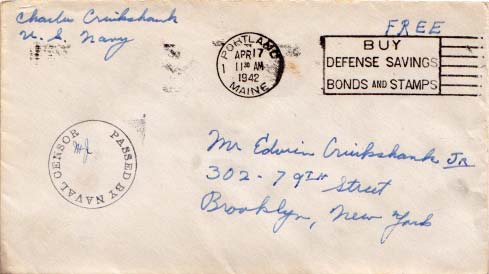 Charles Cruikshank
U. S. Navy
FREE
PORTLAND
APR 17
11 30 AM
1942
MAINE
BUY
DEFENSE SAVINGS
BONDS AND STAMPS
PASSED BY NAVAL CENSOR
Mr Edwin Cruikshank Jr
302 - 79TH Street
Brooklyn, New York